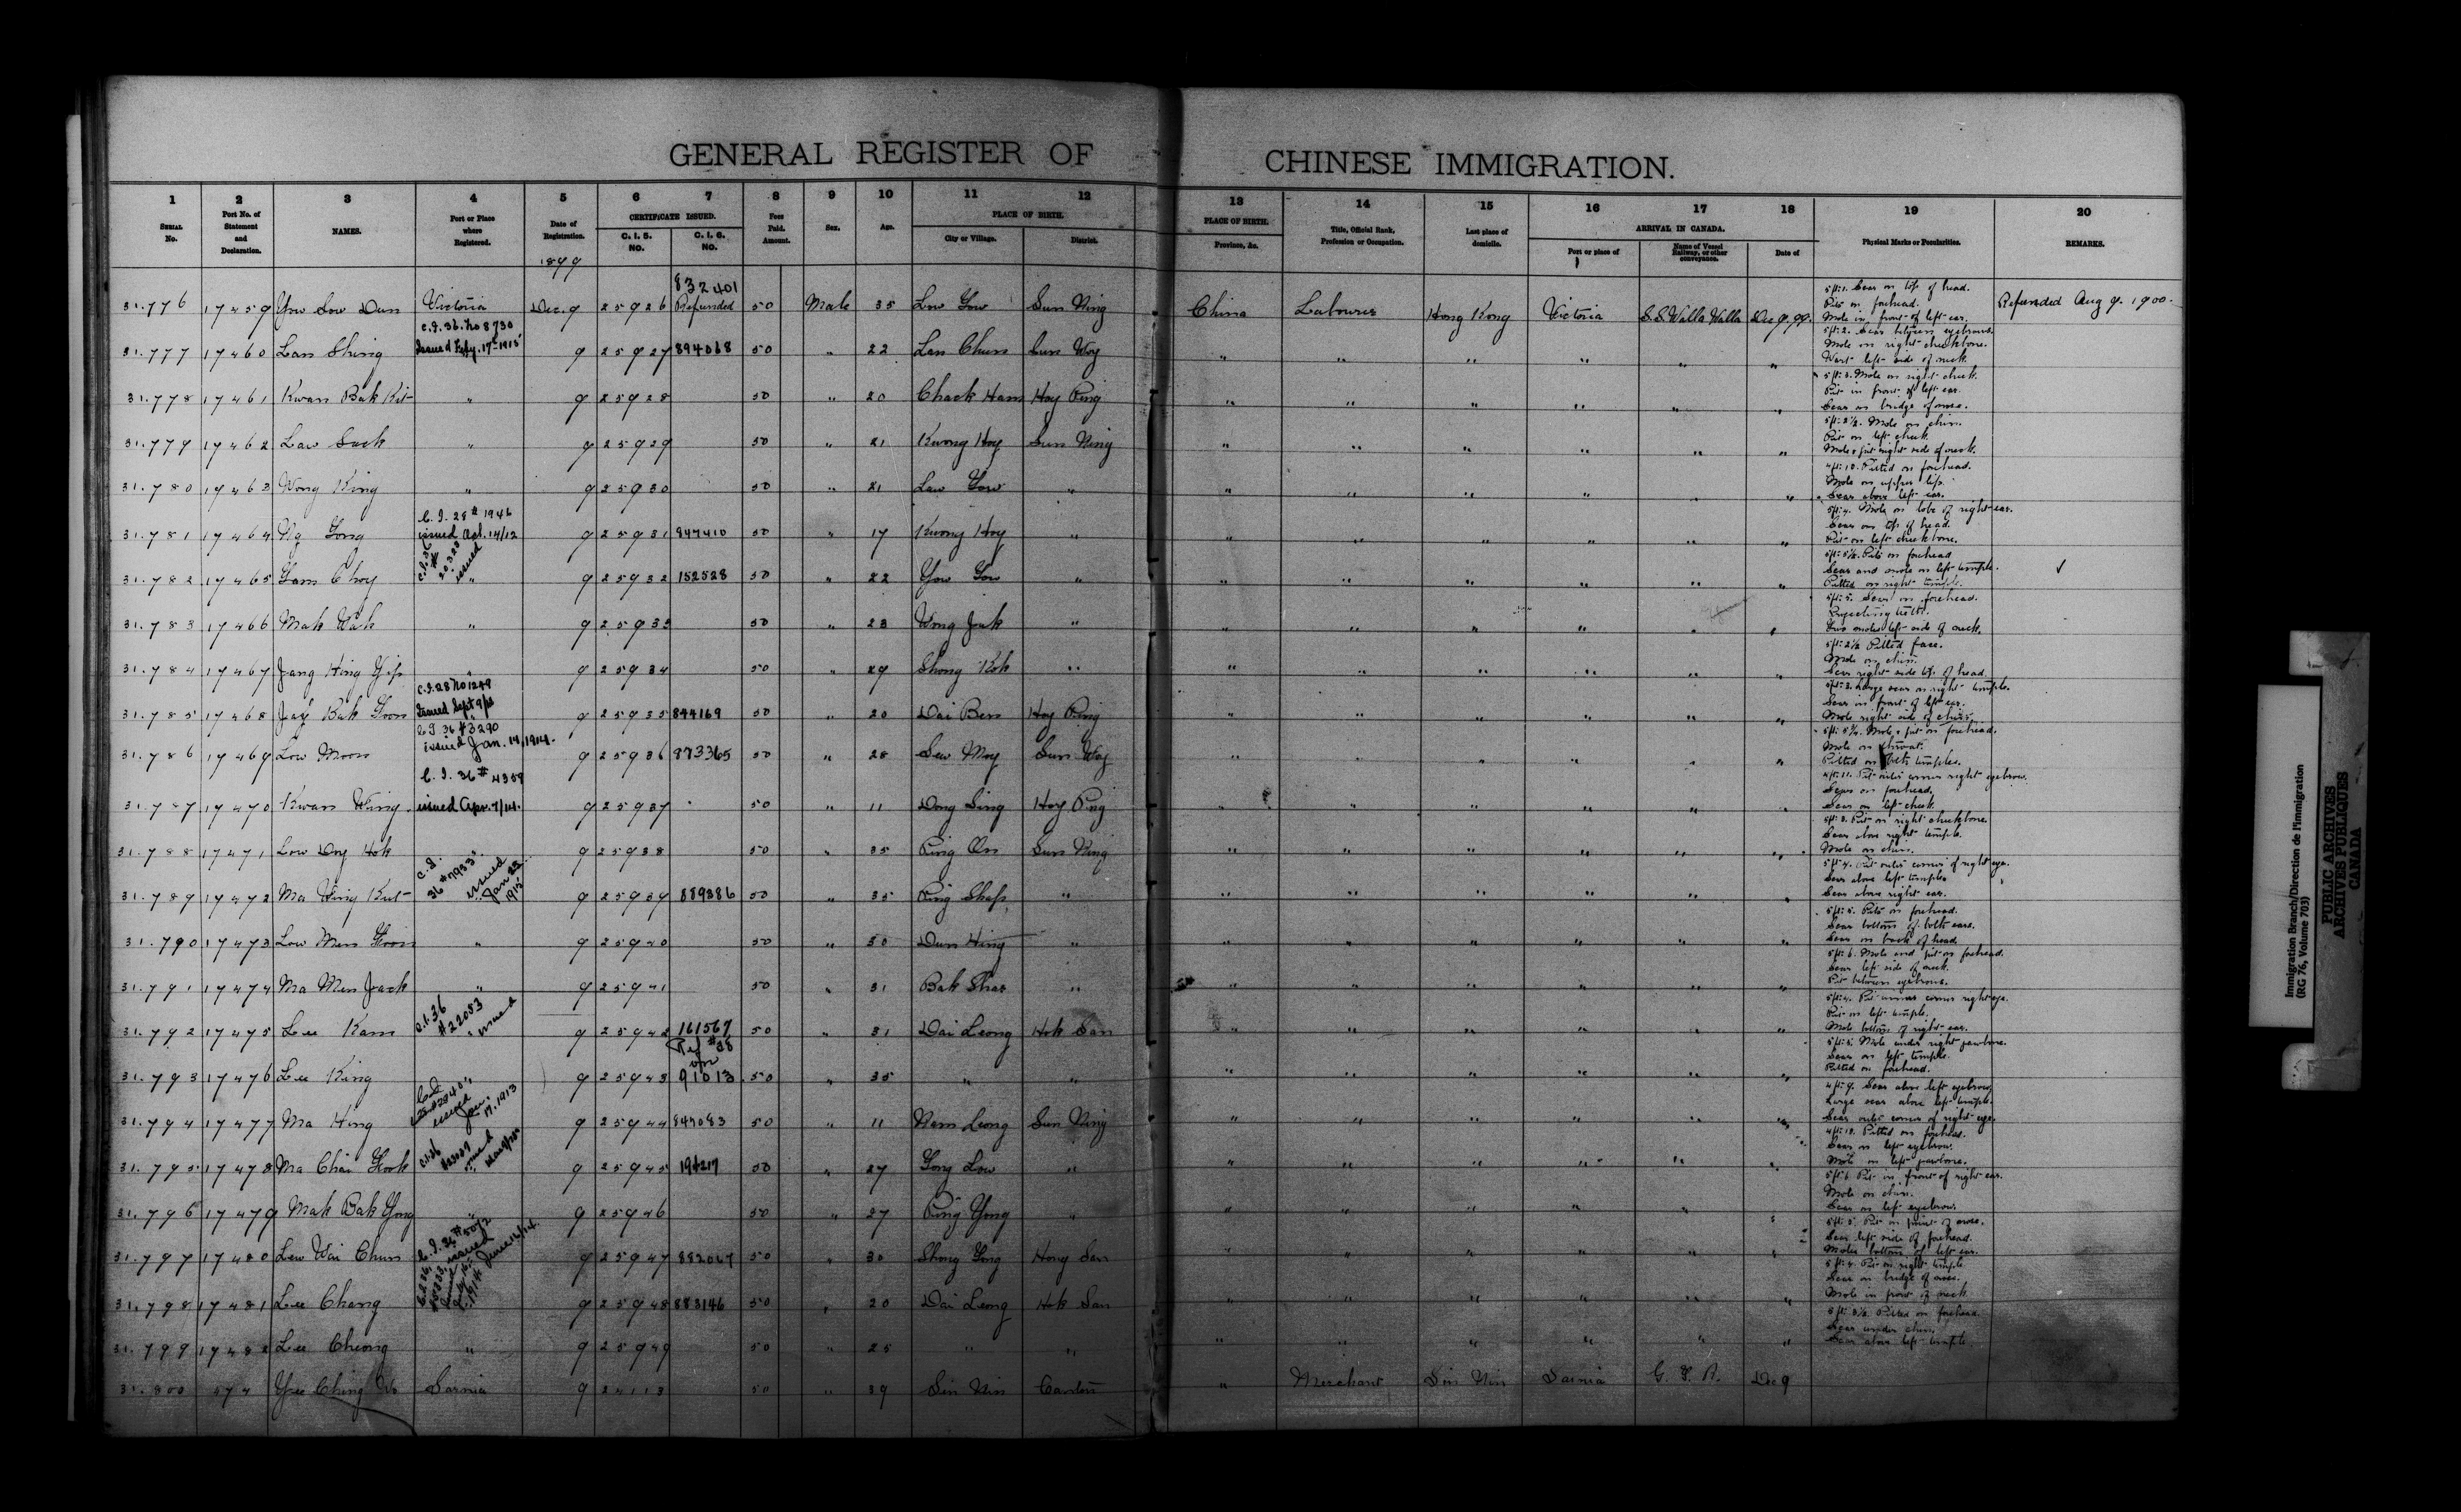 GENERAL REGISTER OF CHINESE IMMIGRATION.
1 2 3 4 5 6 7 8 9 10 11 12 13 14 15 16 17 18 19 20
SERIAL No. Port No. of Statement and Declaration. NAMES. Port or Place where Registered. Date of Registration. CERTIFICATE ISSUED. C. I. 5. NO. C. I. 6. NO. Fees Paid. Amount. Sex. Age. PLACE OF BIRTH. City or Village. District. PLACE OF BIRTH. Province, &c. Title, Official Rank, Profession or Occupation. Last place of domicile. ARRIVAL IN CANADA. Port or place of Name of Vessel Railway, or other conveyance. Date of Physical Marks or Peculiarities. REMARKS.
1899
832401
31.776 17459 Yow Sow Dun Victoria Dec. 9 25926 Refunded 50 Male 35 Low Yow Sun Ning China Labourer Hong Kong Victoria S.S. Walla Walla Dec 9. 99. 5 ft: 1. Scar on top of head. Pits on forehead. Mole in front of left ear. Refunded Aug 9. 1900.
C.I. 36. No 8730
31.777 17460 Lan Shing 9 25927 894068 50 " 22 Lan Chun Sun Woy " " " " " " 5 ft: 2. Scar between eyebrows. Mole on right cheekbone. Wart left side of neck.
31.778 17461 Kwan Bak Kit " 9 25928 50 " 20 Chack Ham Hoy Ping " " " " " " 5 ft: 3. Mole on right cheek. Pit in front of left ear. Scar on bridge of nose.
31.779 17462 Law Suck " 9 25929 50 " 21 Kwong Hoy Sun Ning " " " " " " 5 ft: 2½. Mole on chin. Pit on left cheek. Mole & pit right side of neck.
31.780 17463 Wong King " 9 25930 50 " 21 Law Gow " " " " " " " 4 ft: 10. Pitted on forehead. Mole on upper lip. Scar above left ear.
C. I. 28 # 1946
31.781 17464 Ng Gong issued Oct. 14/12 9 25931 847410 50 " 17 Kwong Hoy " " " " " " " 5 ft: 4. Mole on lobe of right ear. Scar on top of head. Pit on left cheekbone.
C.I. 36 # 20323 issued
31.782 17465 Gam Choy " 9 25932 152528 50 " 22 Yow Gow " " " " " " " 5 ft: 5½. Pits on forehead Scar and mole on left temple. Pitted on right temple. ✓
31.783 17466 Mak Wah " 9 25933 50 " 23 Wong Juk " " " " " " " 5 ft: 5. Scar on forehead. Projecting teeth. Two moles left side of neck.
31.784 17467 Jang Hing Yip " 9 25934 50 " 29 Shong Kok " " " " " " " 5 ft: 2½ Pitted face. Mole on chin. Scar right side top of head.
C.I. 28 No 1249
Issued Sept 9/12
31.785 17468 Jay Bak Goon 9 25935 844169 50 " 20 Dai Ben Hoy Ping " " " " " " 5 ft: 3. Large scar on right temple. Scar in front of left ear. Mole right side of chin.
C I 36 # 3290
issued Jan. 14, 1914.
31.786 17469 Low Moon 9 25936 873365 50 " 28 Sew Moy Sun Woy " " " " " " 5 ft: 5¼. Mole & pit on forehead. Mole on throat. Pitted on both temples.
C. I. 36 # 4359
31.787 17470 Kwan Wing. issued Apr. 7/14. 9 25937 50 " 11 Dong Sing Hoy Ping " " " " " " 4 ft: 11. Pit outer corner right eyebrow. Scars on forehead. Scar on left cheek.
31.788 17471 Low Doy Hok 9 25938 50 " 35 Ping On Sun Ning " " " " " " 5 ft: 3. Pit on right cheekbone Scar above right temple. Mole on chin.
C.I. 36 # 7933 issued Jan 23 1915
31.789 17472 Ma Wing Kut 9 25939 889386 50 " 35 Ping Shap " " " " " " " 5 ft: 4. Pit outer corner of right eye. Scar above left temple Scar above right ear.
31.790 17473 Low Man Goon " 9 25940 50 " 30 Dun Hing " " " " " " " 5 ft: 5. Pits on forehead. Scar bottom of both ears. Scar on back of head.
31.791 17474 Ma Men Jack " 9 25941 50 " 31 Bak Shar " " " " " " " 5 ft: 6. Mole and pit on forehead. Scar left side of neck. Pit between eyebrows.
C.I. 36 # 22053 issued
31.792 17475 Lee Kam 9 25942 161567 50 " 31 Dai Leong Hok San " " " " " " 5 ft: 4. Pit inner corner right eye. Pit on left temple. Mole bottom of right ear.
31.793 17476 Lee King " 9 25943 91013 50 " 35 " " " " " " " " 5 ft: 5. Mole under right jawbone. Scar on left temple. Pitted on forehead.
issued Jan. 17. 1913
31.794 17477 Ma Hing 9 25944 847083 50 " 11 Nam Leong Sun Ning " " " " " " 4 ft: 9. Scar above left eyebrow Large scar above left temple. Scar outer corner of right eye.
31.795 17478 Ma Chai Gook 9 25945 194217 50 " 27 Gong Low " " " " " " " 4 ft: 10. Pitted on forehead. Scar on left eyebrow. Mole on left jawbone.
31.796 17479 Mak Bak Yong " 9 25946 50 " 27 Ping Yong " " " " " " " 5 ft: 1. Pit in front of right ear. Mole on chin. Scar on left eyebrow.
31.797 17480 Lew Wai Chun 9 25947 882067 50 " 30 Shong Gong Hong San " " " " " " 5 ft: 5. Pit on point of nose. Scar left side of forehead. Moles bottom of left ear.
31.798 17481 Lee Chang 9 25948 883146 50 " 20 Dai Leong Hok San " " " " " " 5 ft: 4. Pit on right temple. Scar on bridge of nose. Mole in front of neck.
31.799 17482 Lee Cheong " 9 25949 50 " 25 " " " " " " " " 5 ft: 3½. Pitted on forehead. Scar under chin. Scar above left temple
31.800 574 Yee Ching Wo Sarnia 9 24113 50 " 39 Sin Nin Canton " Merchant Sin Nin Sarnia G. T. R. Dec 9
Immigration Branch/Direction de l'immigration
(RG 76, Volume 703)
PUBLIC ARCHIVES
ARCHIVES PUBLIQUES
CANADA